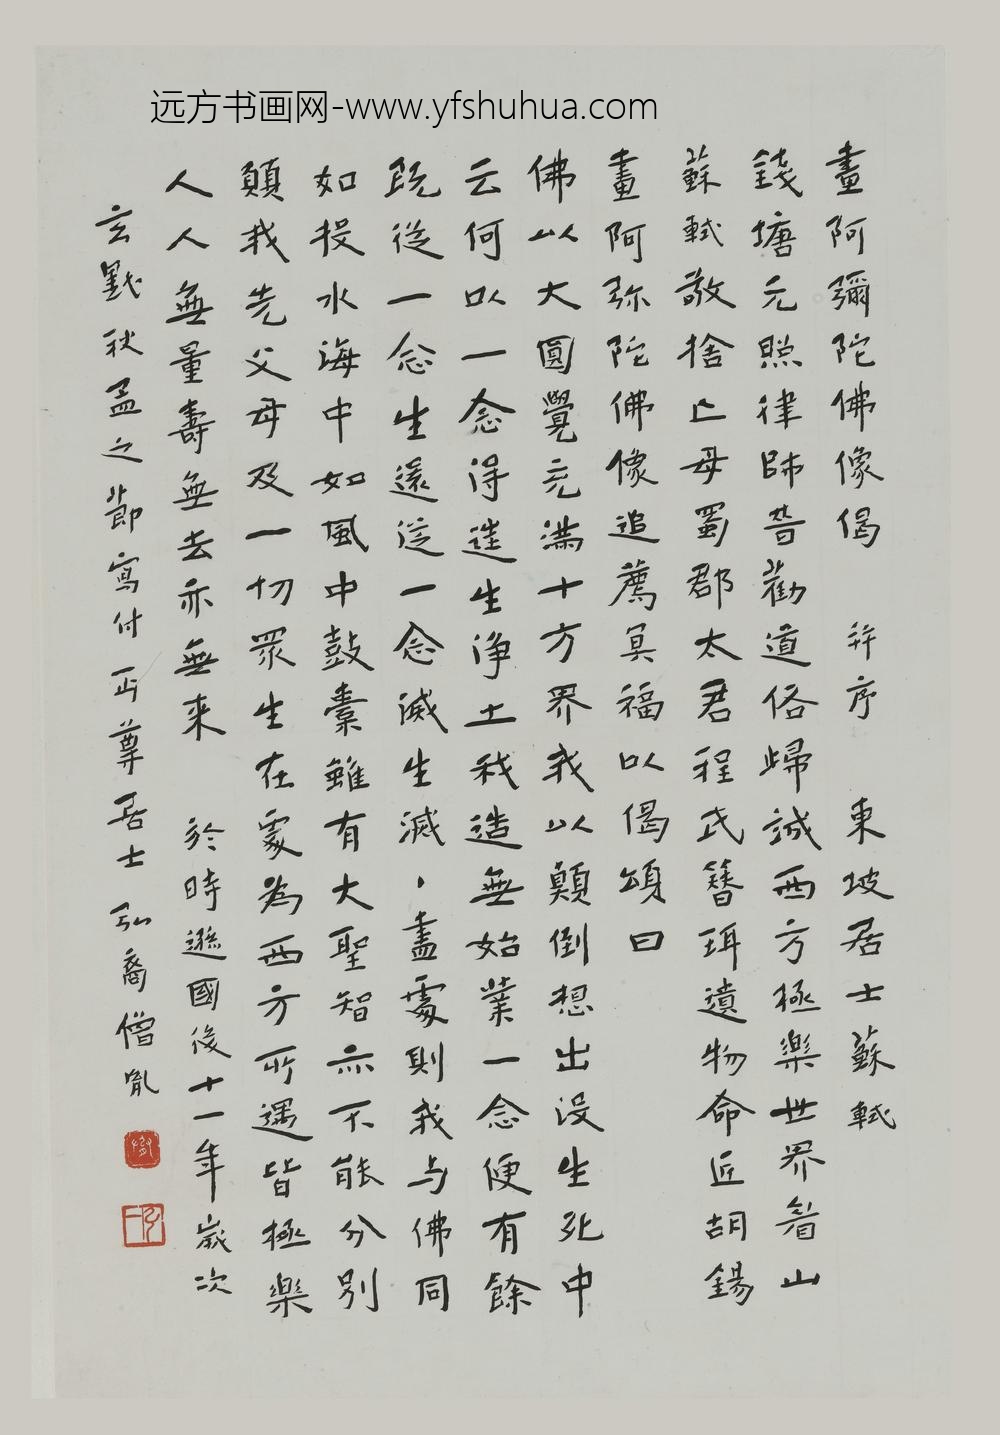 远方书画网-www.yfshuhua.com
畫阿彌陀佛像偈 并序 東坡居士蘇軾
錢塘元照律師普勸道俗歸誠西方極樂世界眉山
蘇軾敬捨亡母蜀郡太君程氏簪珥遺物命匠胡錫
畫阿弥陀佛像追薦冥福以偈頌曰
佛以大圓覺充滿十方界我以顛倒想出沒生死中
云何以一念得逹生淨土我造無始業一念便有餘
既從一念生還從一念滅生滅、盡處則我与佛同
如投水海中如風中鼓橐雖有大聖智亦不能分別
願我先父母及一切眾生在處為西方所遇皆極樂
人人無量壽無去亦無来 於時遜國後十一年歲次
玄黓秋孟之節寫付 尊居士 弘裔僧胤